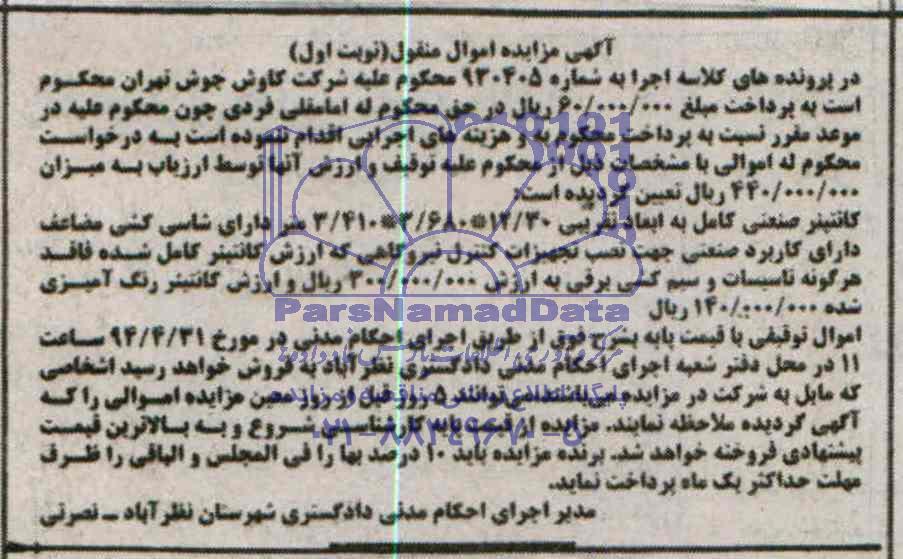 آگهی مزایده اموال منقول(نوبت اول)
در پرونده های کلاسه اجرا به شماره ۹۳۰۴۰۵ محکوم علیه شرکت کاوش جوش تهران محکوم
است به پرداخت مبلغ ۶۰/۰۰۰/۰۰۰ ریال در حق محکوم له امامقلی فردی چون محکوم علیه در
موعد مقرر نسبت به پرداخت محکوم به و هزینه های اجرایی اقدام ننموده است به درخواست
محکوم له اموالی با مشخصات ذیل از محکوم علیه توقیف و ارزش آنها توسط ارزیاب به میزان
۴۴۰/۰۰۰/۰۰۰ ریال تعیین گردیده است:
کانتینر صنعتی کامل به ابعاد تقریبی ۱۲/۳۰*۳/۶۸۰*۳/۴۱۰ متر دارای شاسی کشی مضاعف
دارای کاربرد صنعتی جهت نصب تجهیزات کنترل نیروگاهی که ارزش کانتینر کامل شده فاقد
هرگونه تاسیسات و سیم کشی برقی به ارزش ۳۰۰/۰۰۰/۰۰۰ ریال و ارزش کانتینر رنگ آمیزی
شده ۱۴۰/۰۰۰/۰۰۰ ریال
ParsNamadData
اموال توقیفی با قیمت پایه بشرح فوق از طریق اجرای احکام مدنی در مورخ ۹۴/۴/۳۱ ساعت
۱۱ در محل دفتر شعبه اجرای احکام مدنی دادگستری نظرآباد به فروش خواهد رسید اشخاصی
که مایل به شرکت در مزایده می‌باشند می توانند ۵ روز قبل از روز معین مزایده اموالی را که
آگهی گردیده ملاحظه نمایند. مزایده از قیمت پایه کارشناسی شروع و به بالاترین قیمت
۰۲۱-۸۸۳۴۹۶۷۰-۵
پیشنهادی فروخته خواهد شد. برنده مزایده باید ۱۰ درصد بها را فی المجلس و الباقی را ظرف
مهلت حداکثر یک ماه پرداخت نماید.
مدیر اجرای احکام مدنی دادگستری شهرستان نظرآباد ــ نصرتی